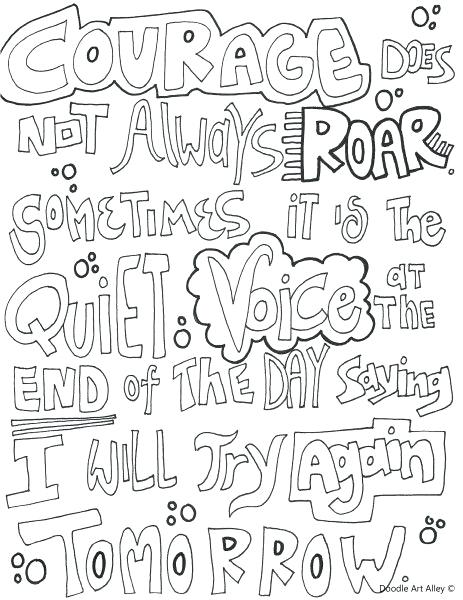 COURAGE DOES
NOT Always ROAR.
SOMETIMES iT iS The
QUiET Voice aT THE
END of THE DAY Saying
I WiLL Try Again
TOMORROW.
Doodle Art Alley ©